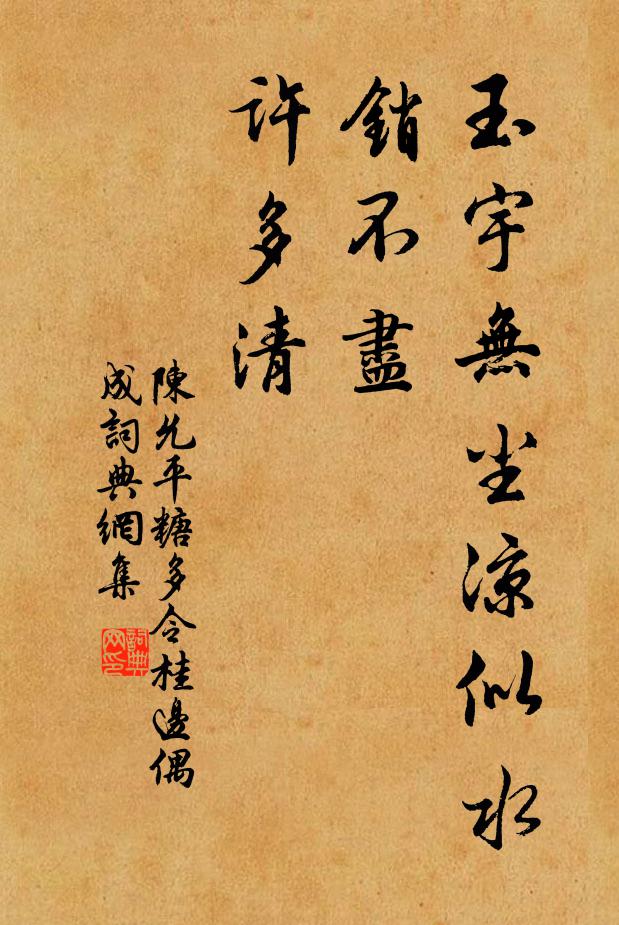 玉宇無尘涼似水
銷不盡
許多清
陳允平糖多令桂邊偶
成詞典網集
詞典
网印